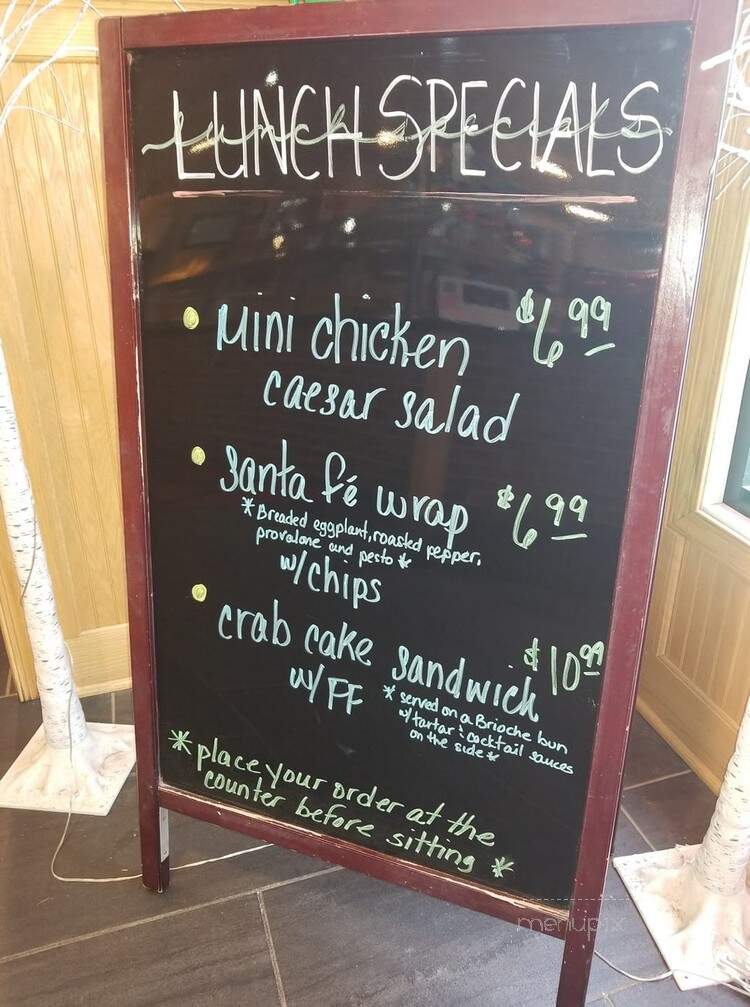 LUNCH SPECIALS
lunch specials
• Mini chicken $6.99
caesar salad
• Santa fé wrap $6.99
* Breaded eggplant, roasted pepper,
provalone and pesto *
w/chips
• crab cake sandwich $10.99
w/ FF
* served on a Brioche bun
w/tartar & cocktail sauces
on the side *
* place your order at the
counter before sitting *
menupix